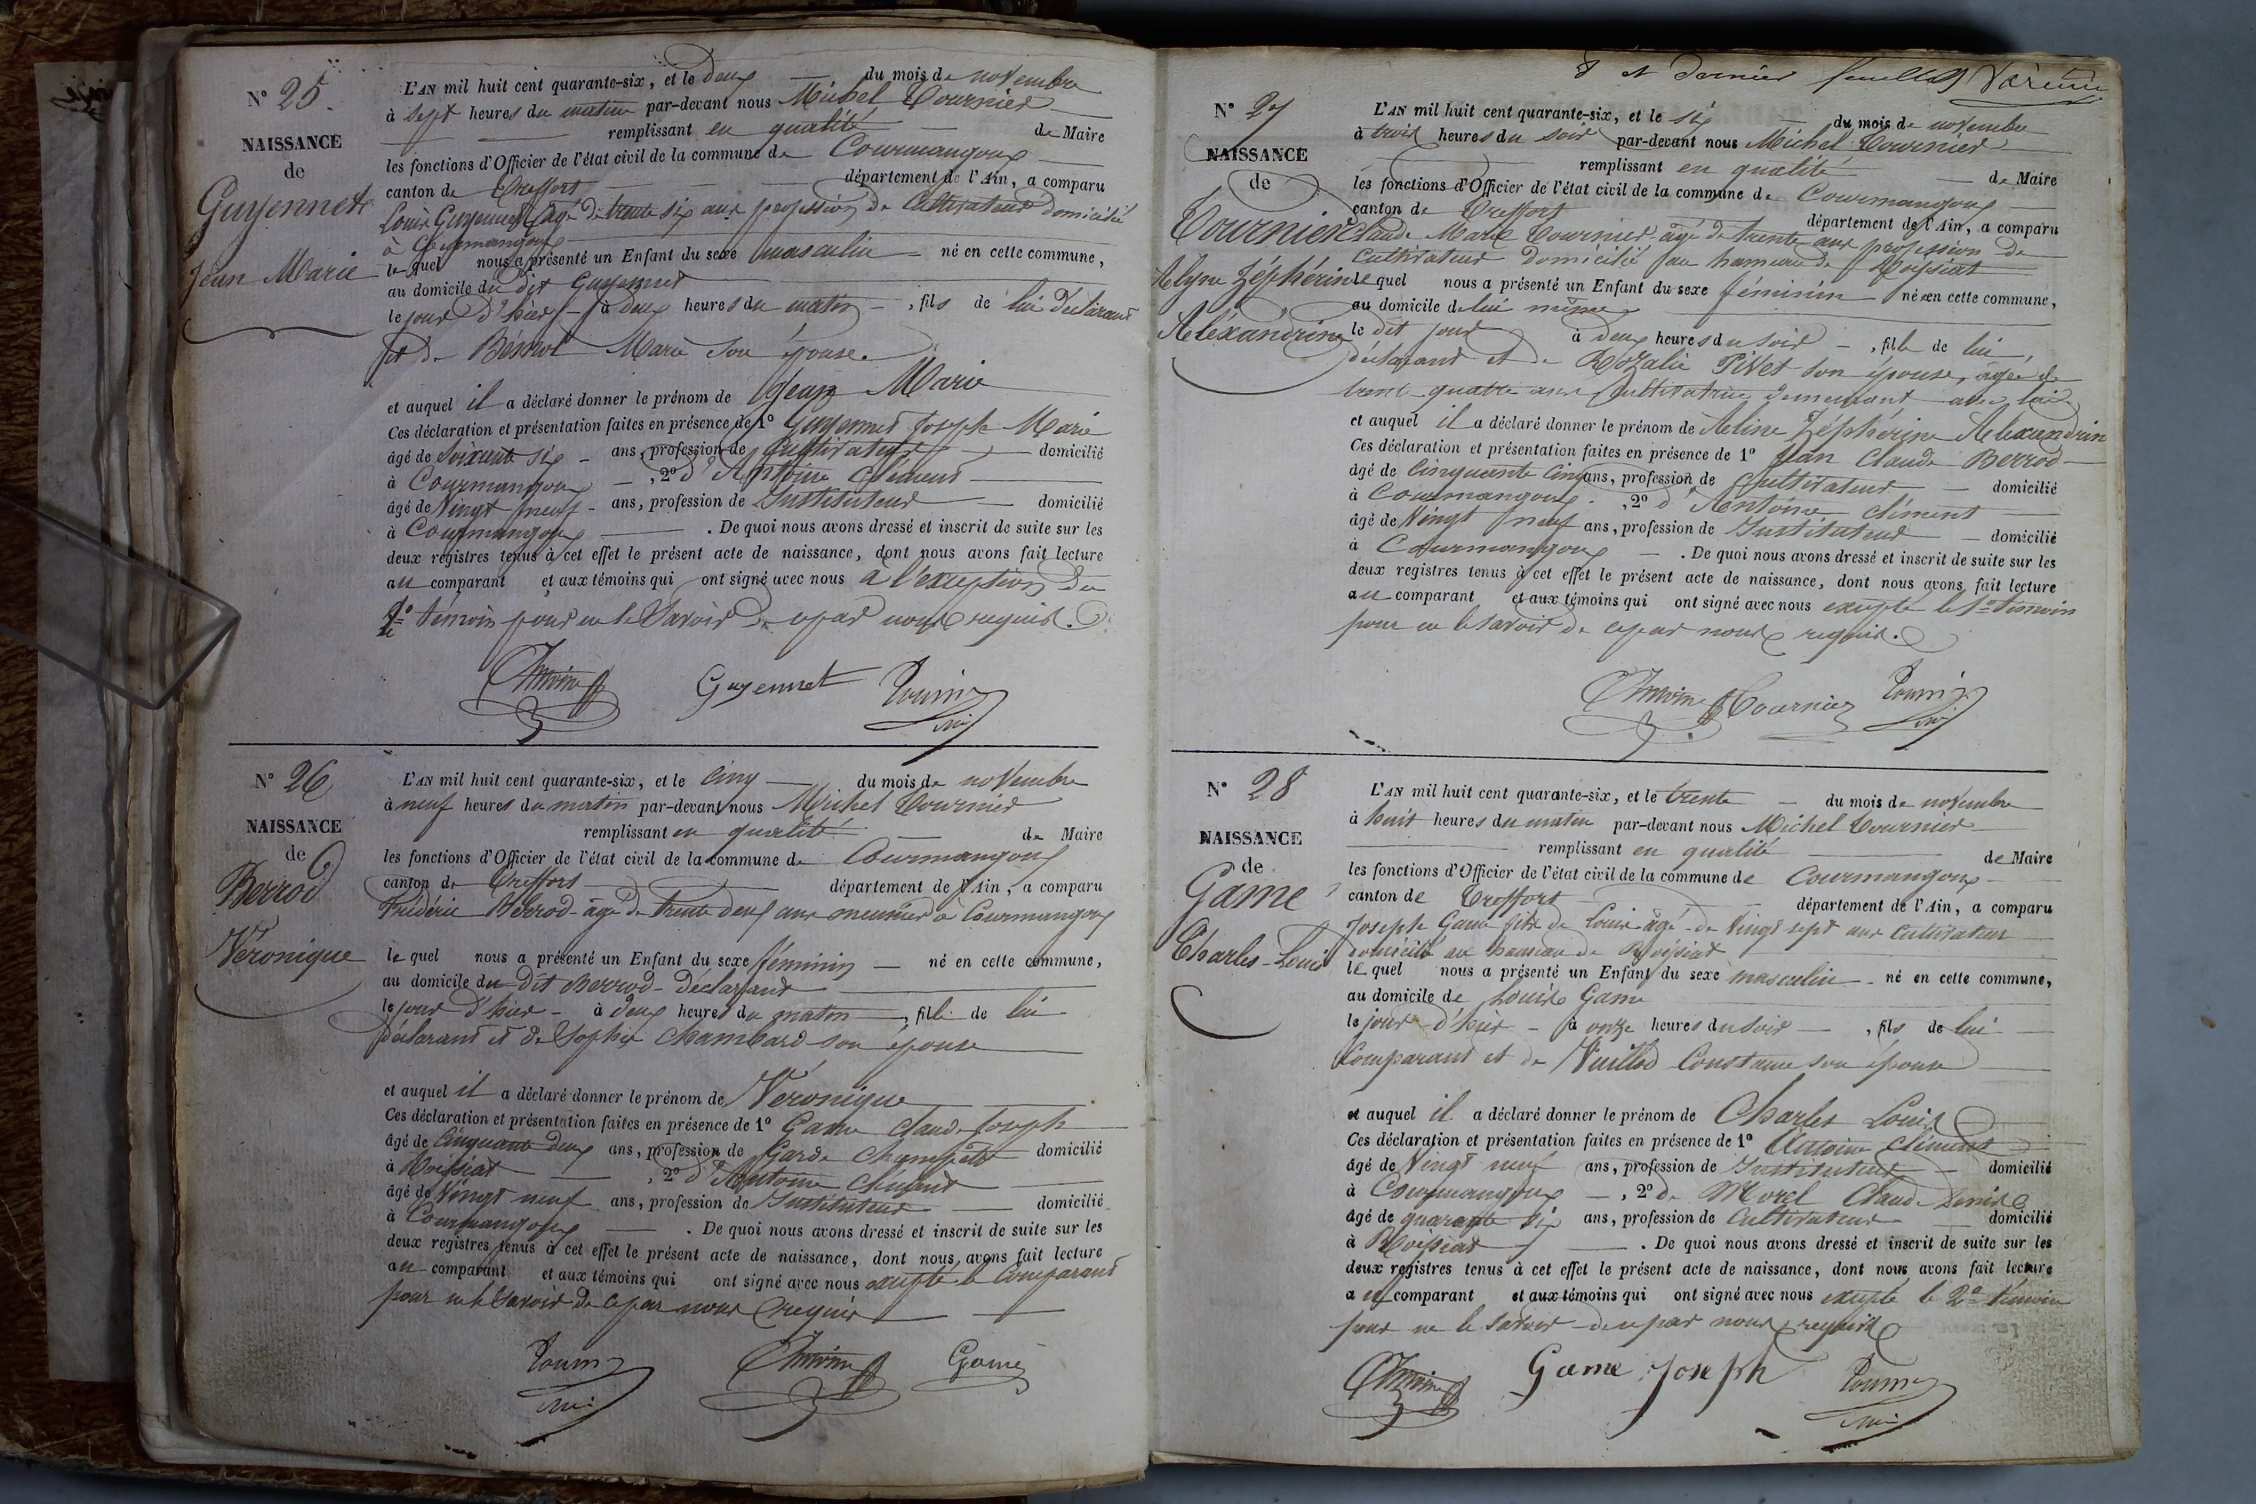 N° 25.
NAISSANCE
de
Guyennet
Jean Marie
L'AN mil huit cent quarante-six, et le deux du mois de novembre
à sept heures du matin par-devant nous Michel Tournier
remplissant en qualité de Maire
les fonctions d'Officier de l'état civil de la commune de Courmangoux
canton de Treffort département de l'Ain, a comparu
Louis Guyennet âgé de trente six ans profession de Cultivateur domicilié
à Courmangoux
le quel nous a présenté un Enfant du sexe masculin né en cette commune,
au domicile du dit Guyennet
le jour d'hier à deux heures du matin, fils de lui déclarant
et de Berrod Marie son épouse.
et auquel il a déclaré donner le prénom de Jean Marie
Ces déclaration et présentation faites en présence de 1° Guyennet Joseph Marie
âgé de soixante six ans, profession de Cultivateur domicilié
à Courmangoux, 2° d'Antoine Clément
âgé de vingt neuf ans, profession de Instituteur domicilié
à Courmangoux. De quoi nous avons dressé et inscrit de suite sur les
deux registres tenus à cet effet le présent acte de naissance, dont nous avons fait lecture
au comparant et aux témoins qui ont signé avec nous à l'exception du
1er témoin pour ne le savoir de ce par nous requis.
Antoine Guyennet Tournier
N° 26
NAISSANCE
de
Berrod
Véronique
L'AN mil huit cent quarante-six, et le cinq du mois de novembre
à neuf heures du matin par-devant nous Michel Tournier
remplissant en qualité de Maire
les fonctions d'Officier de l'état civil de la commune de Courmangoux
canton de Treffort département de l'Ain, a comparu
Frédéric Berrod âgé de trente deux ans meunier à Courmangoux
le quel nous a présenté un Enfant du sexe féminin né en cette commune,
au domicile du dit Berrod déclarant
le jour d'hier à deux heures du matin, fille de lui
déclarant et de Sophie Chambard son épouse
et auquel il a déclaré donner le prénom de Véronique
Ces déclaration et présentation faites en présence de 1° Game Claude Joseph
âgé de cinquante deux ans, profession de Garde Champêtre domicilié
à Roissiat, 2° d'Antoine Clément
âgé de vingt neuf ans, profession de Instituteur domicilié
à Courmangoux. De quoi nous avons dressé et inscrit de suite sur les
deux registres tenus à cet effet le présent acte de naissance, dont nous avons fait lecture
au comparant et aux témoins qui ont signé avec nous excepté le Comparant
pour ne le savoir de ce par nous requis
Tournier Antoine Game
8 et dernier feuillet
N° 27
NAISSANCE
de
Tournier
Alyne Zéphérine
Aléxandrine
L'AN mil huit cent quarante-six, et le six du mois de novembre
à trois heures du soir par-devant nous Michel Tournier
remplissant en qualité de Maire
les fonctions d'Officier de l'état civil de la commune de Courmangoux
canton de Treffort département de l'Ain, a comparu
Claude Marie Tournier âgé de trente ans profession de
Cultivateur domicilié au hameau de Roissiat
le quel nous a présenté un Enfant du sexe féminin né en cette commune,
au domicile de lui même
le dit jour à deux heures du soir, fille de lui
déclarant et de Rozalie Pivet son épouse, agée de
vent quatre ans Cultivatrice demeurant avec lui
et auquel il a déclaré donner le prénom de Aeline Zéphérine Alexandrin
Ces déclaration et présentation faites en présence de 1° Jean Claude Berrod
âgé de Cinquante Cinq ans, profession de Cultivateur domicilié
à Courmangoux, 2° d'Antoine Clément
âgé de Vingt neuf ans, profession de Instituteur domicilié
à Courmangoux. De quoi nous avons dressé et inscrit de suite sur les
deux registres tenus à cet effet le présent acte de naissance, dont nous avons fait lecture
au comparant et aux témoins qui ont signé avec nous excepté le 1er témoin
pour ne le savoir de ce par nous requis.
Antoine Tournier Tournier
N° 28
NAISSANCE
de
Game
Charles-Louis
L'AN mil huit cent quarante-six, et le trente du mois de novembre
à huit heures du matin par-devant nous Michel Tournier
remplissant en qualité de Maire
les fonctions d'Officier de l'état civil de la commune de Courmangoux
canton de Treffort département de l'Ain, a comparu
Joseph Game fils de Louis âgé de Vingt sept ans Cultivateur
domicilié au hameau de Roissiat
le quel nous a présenté un Enfant du sexe masculin né en cette commune,
au domicile de Louis Game
le jour d'hier à onze heures du soir, fils de lui
Comparant et de Vuillod Constance son épouse
et auquel il a déclaré donner le prénom de Charles Louis
Ces déclaration et présentation faites en présence de 1° Antoine Clément
âgé de Vingt neuf ans, profession de Instituteur domicilié
à Courmangoux, 2° de Morel Claude Denis
âgé de quarante six ans, profession de Cultivateur domicilié
à Roissiat. De quoi nous avons dressé et inscrit de suite sur les
deux registres tenus à cet effet le présent acte de naissance, dont nous avons fait lecture
au comparant et aux témoins qui ont signé avec nous excepté le 2e témoin
pour ne le savoir de ce par nous requis
Antoine Game Joseph Tournier